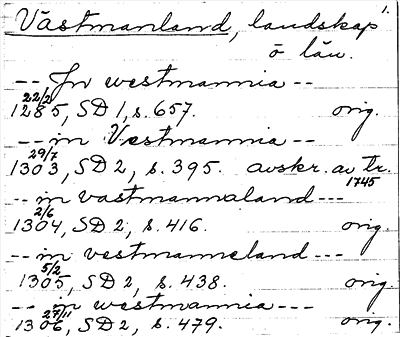 Västmanland, landskap 1.
o län.
-- Jn westmannia --
22/2 1285, SD 1, s. 657. orig.
-- in Vestmannia --
29/7 1303, SD 2, s. 395. avskr. av tr. 1745
-- in vastmannaland ---
2/6 1304, SD 2, s. 416. orig.
-- in vestmanneland ---
5/2 1305, SD 2, s. 438. orig.
-- in westmannia ---
27/11 1306, SD 2, s. 479. orig.